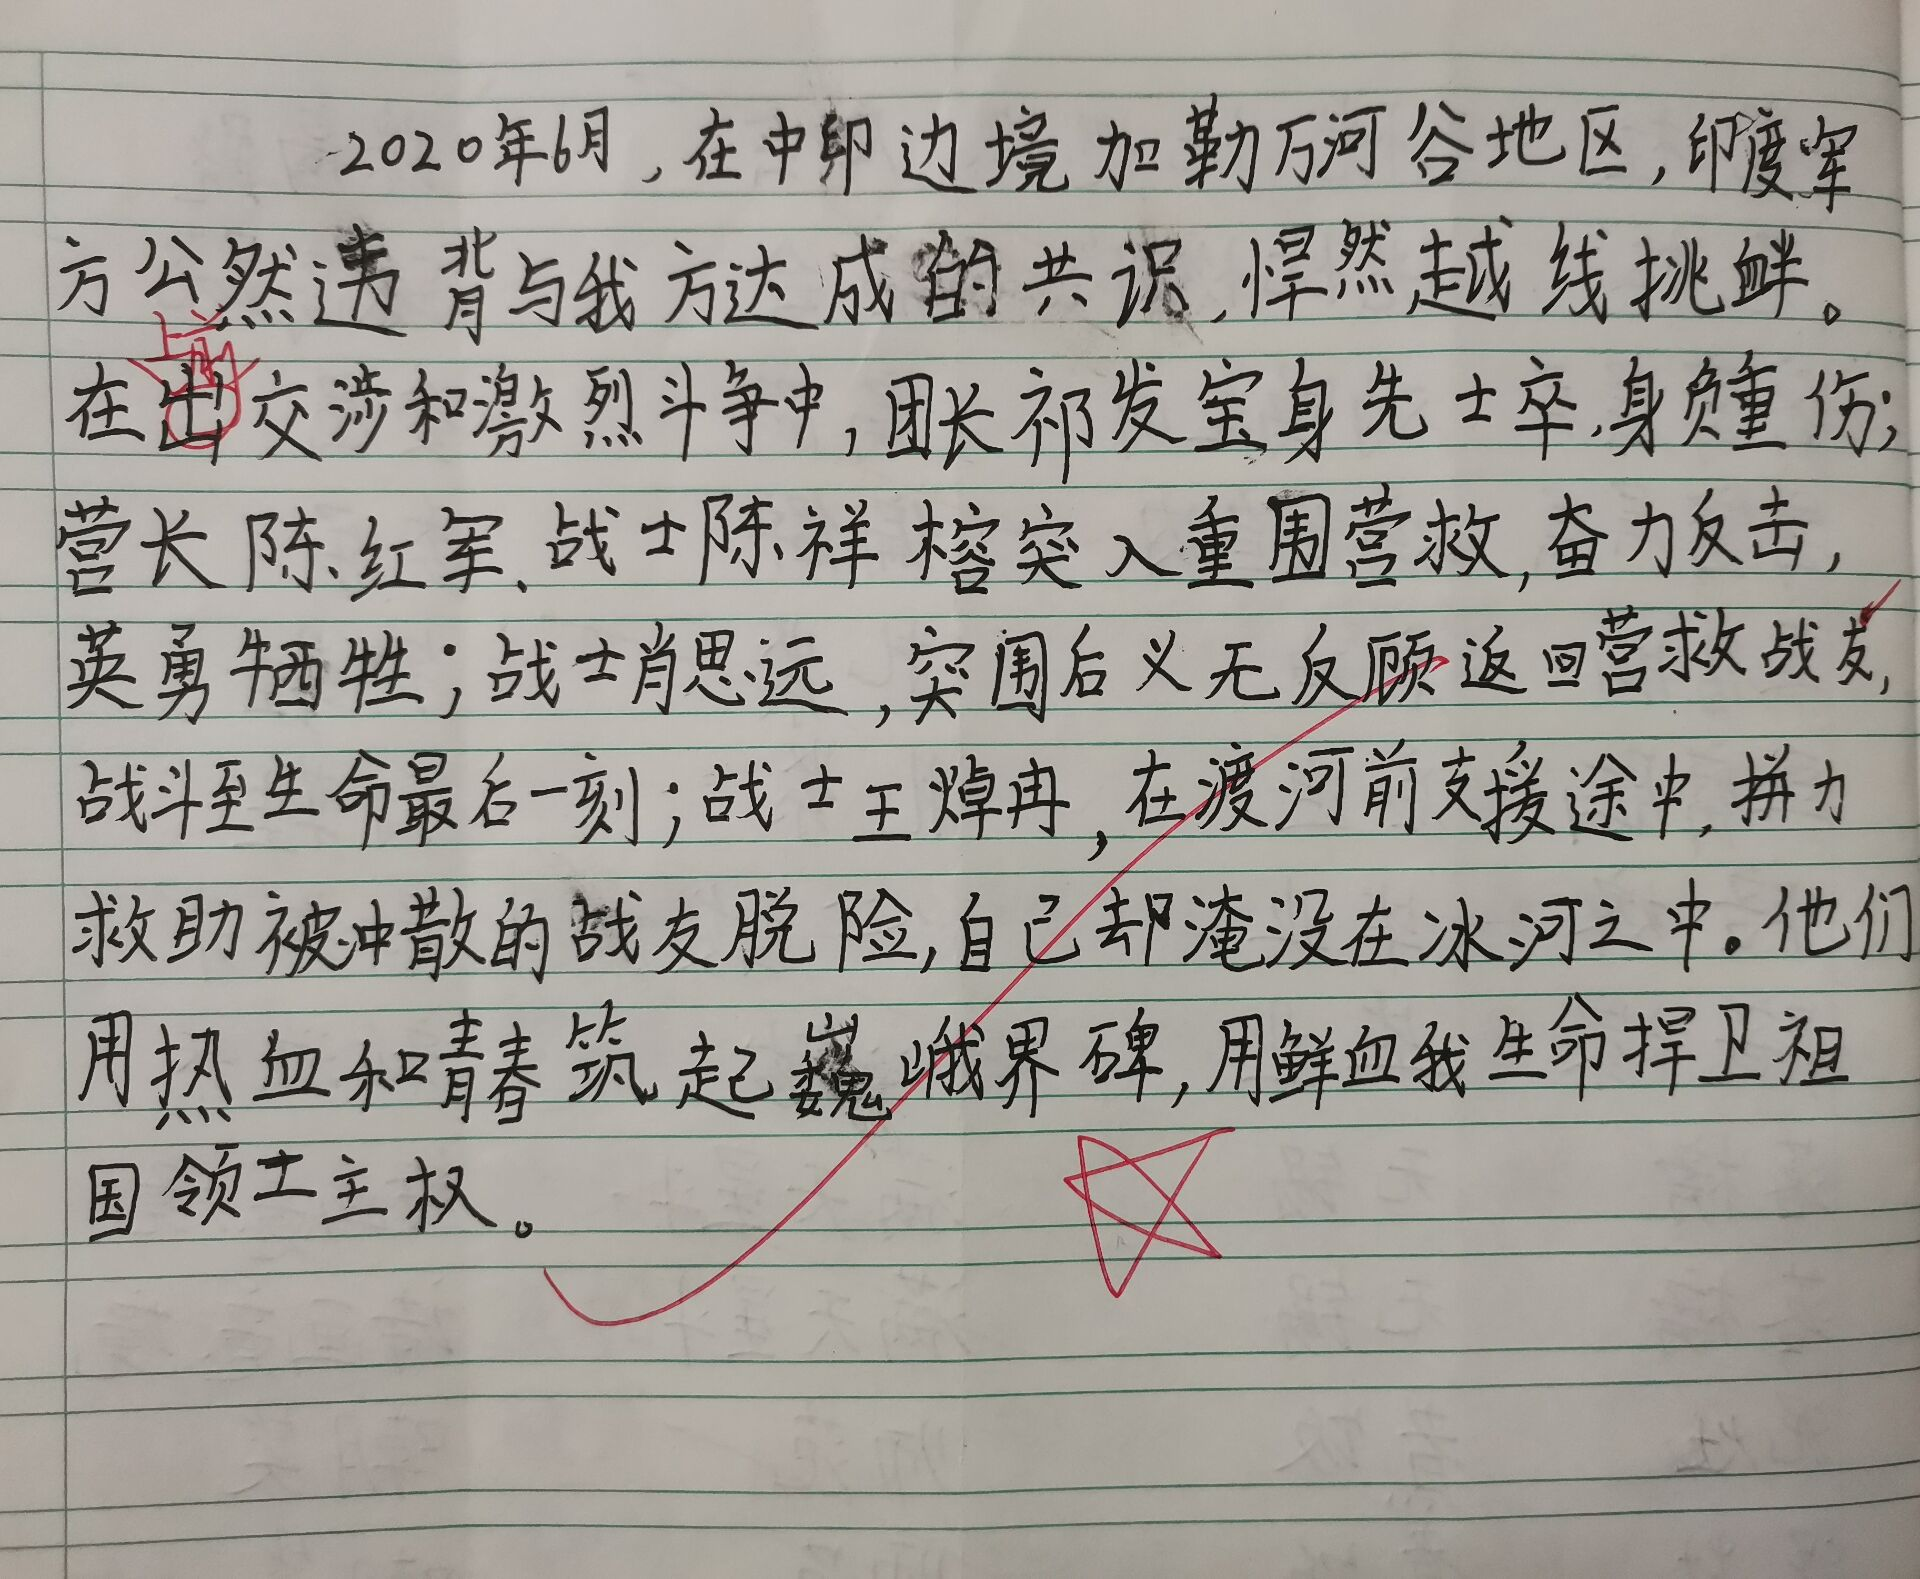 2020年6月，在中印边境加勒万河谷地区，印度军
方公然违背与我方达成的共识，悍然越线挑衅。
在出交涉和激烈斗争中，团长祁发宝身先士卒，身负重伤；
营长陈红军、战士陈祥榕突入重围营救，奋力反击，
英勇牺牲；战士肖思远，突围后义无反顾返回营救战友，
战斗至生命最后一刻；战士王焯冉，在渡河前支援途中，拼力
救助被冲散的战友脱险，自己却淹没在冰河之中。他们
用热血和青春筑起巍峨界碑，用鲜血我生命捍卫祖
国领土主权。